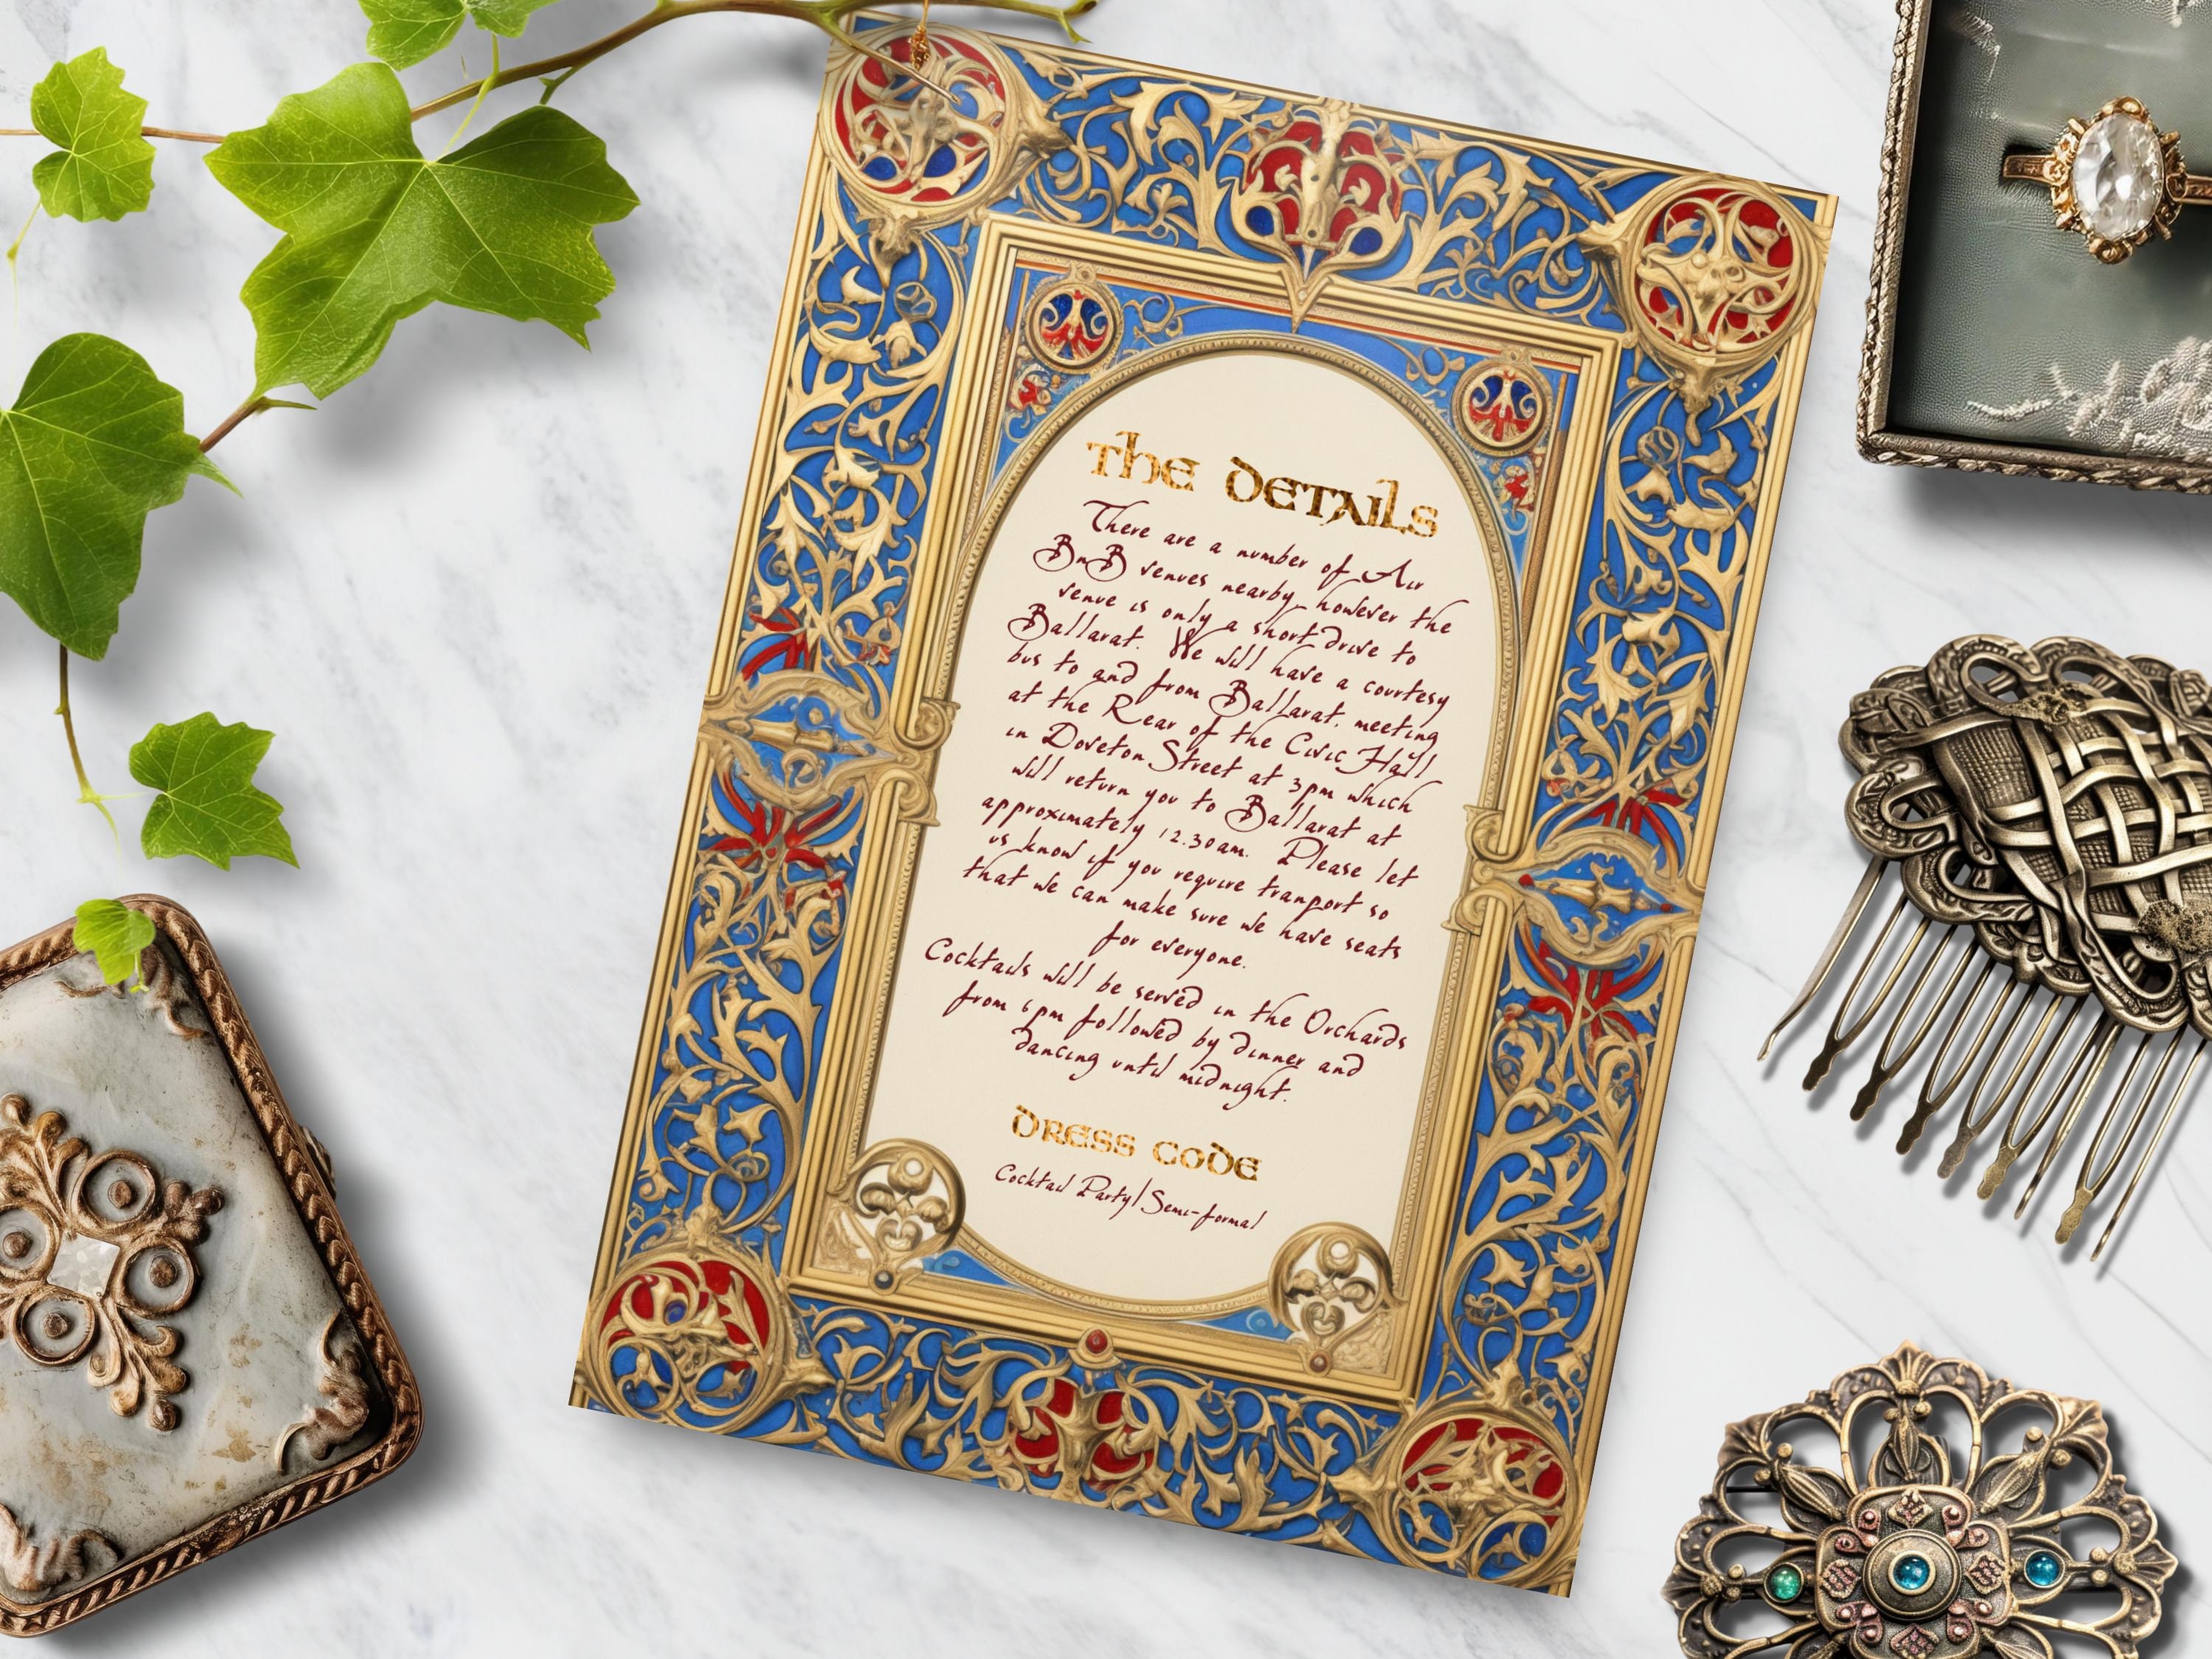 The Details
There are a number of Air
BnB venues nearby, however the
venue is only a short drive to
Ballarat. We will have a courtesy
bus to and from Ballarat, meeting
at the Rear of the Civic Hall
in Doveton Street at 3pm which
will return you to Ballarat at
approximately 12.30am. Please let
us know if you require tranport so
that we can make sure we have seats
for everyone.
Cocktails will be served in the Orchards
from 6pm followed by dinner and
dancing until midnight.
Dress Code
Cocktail Party/Semi-formal